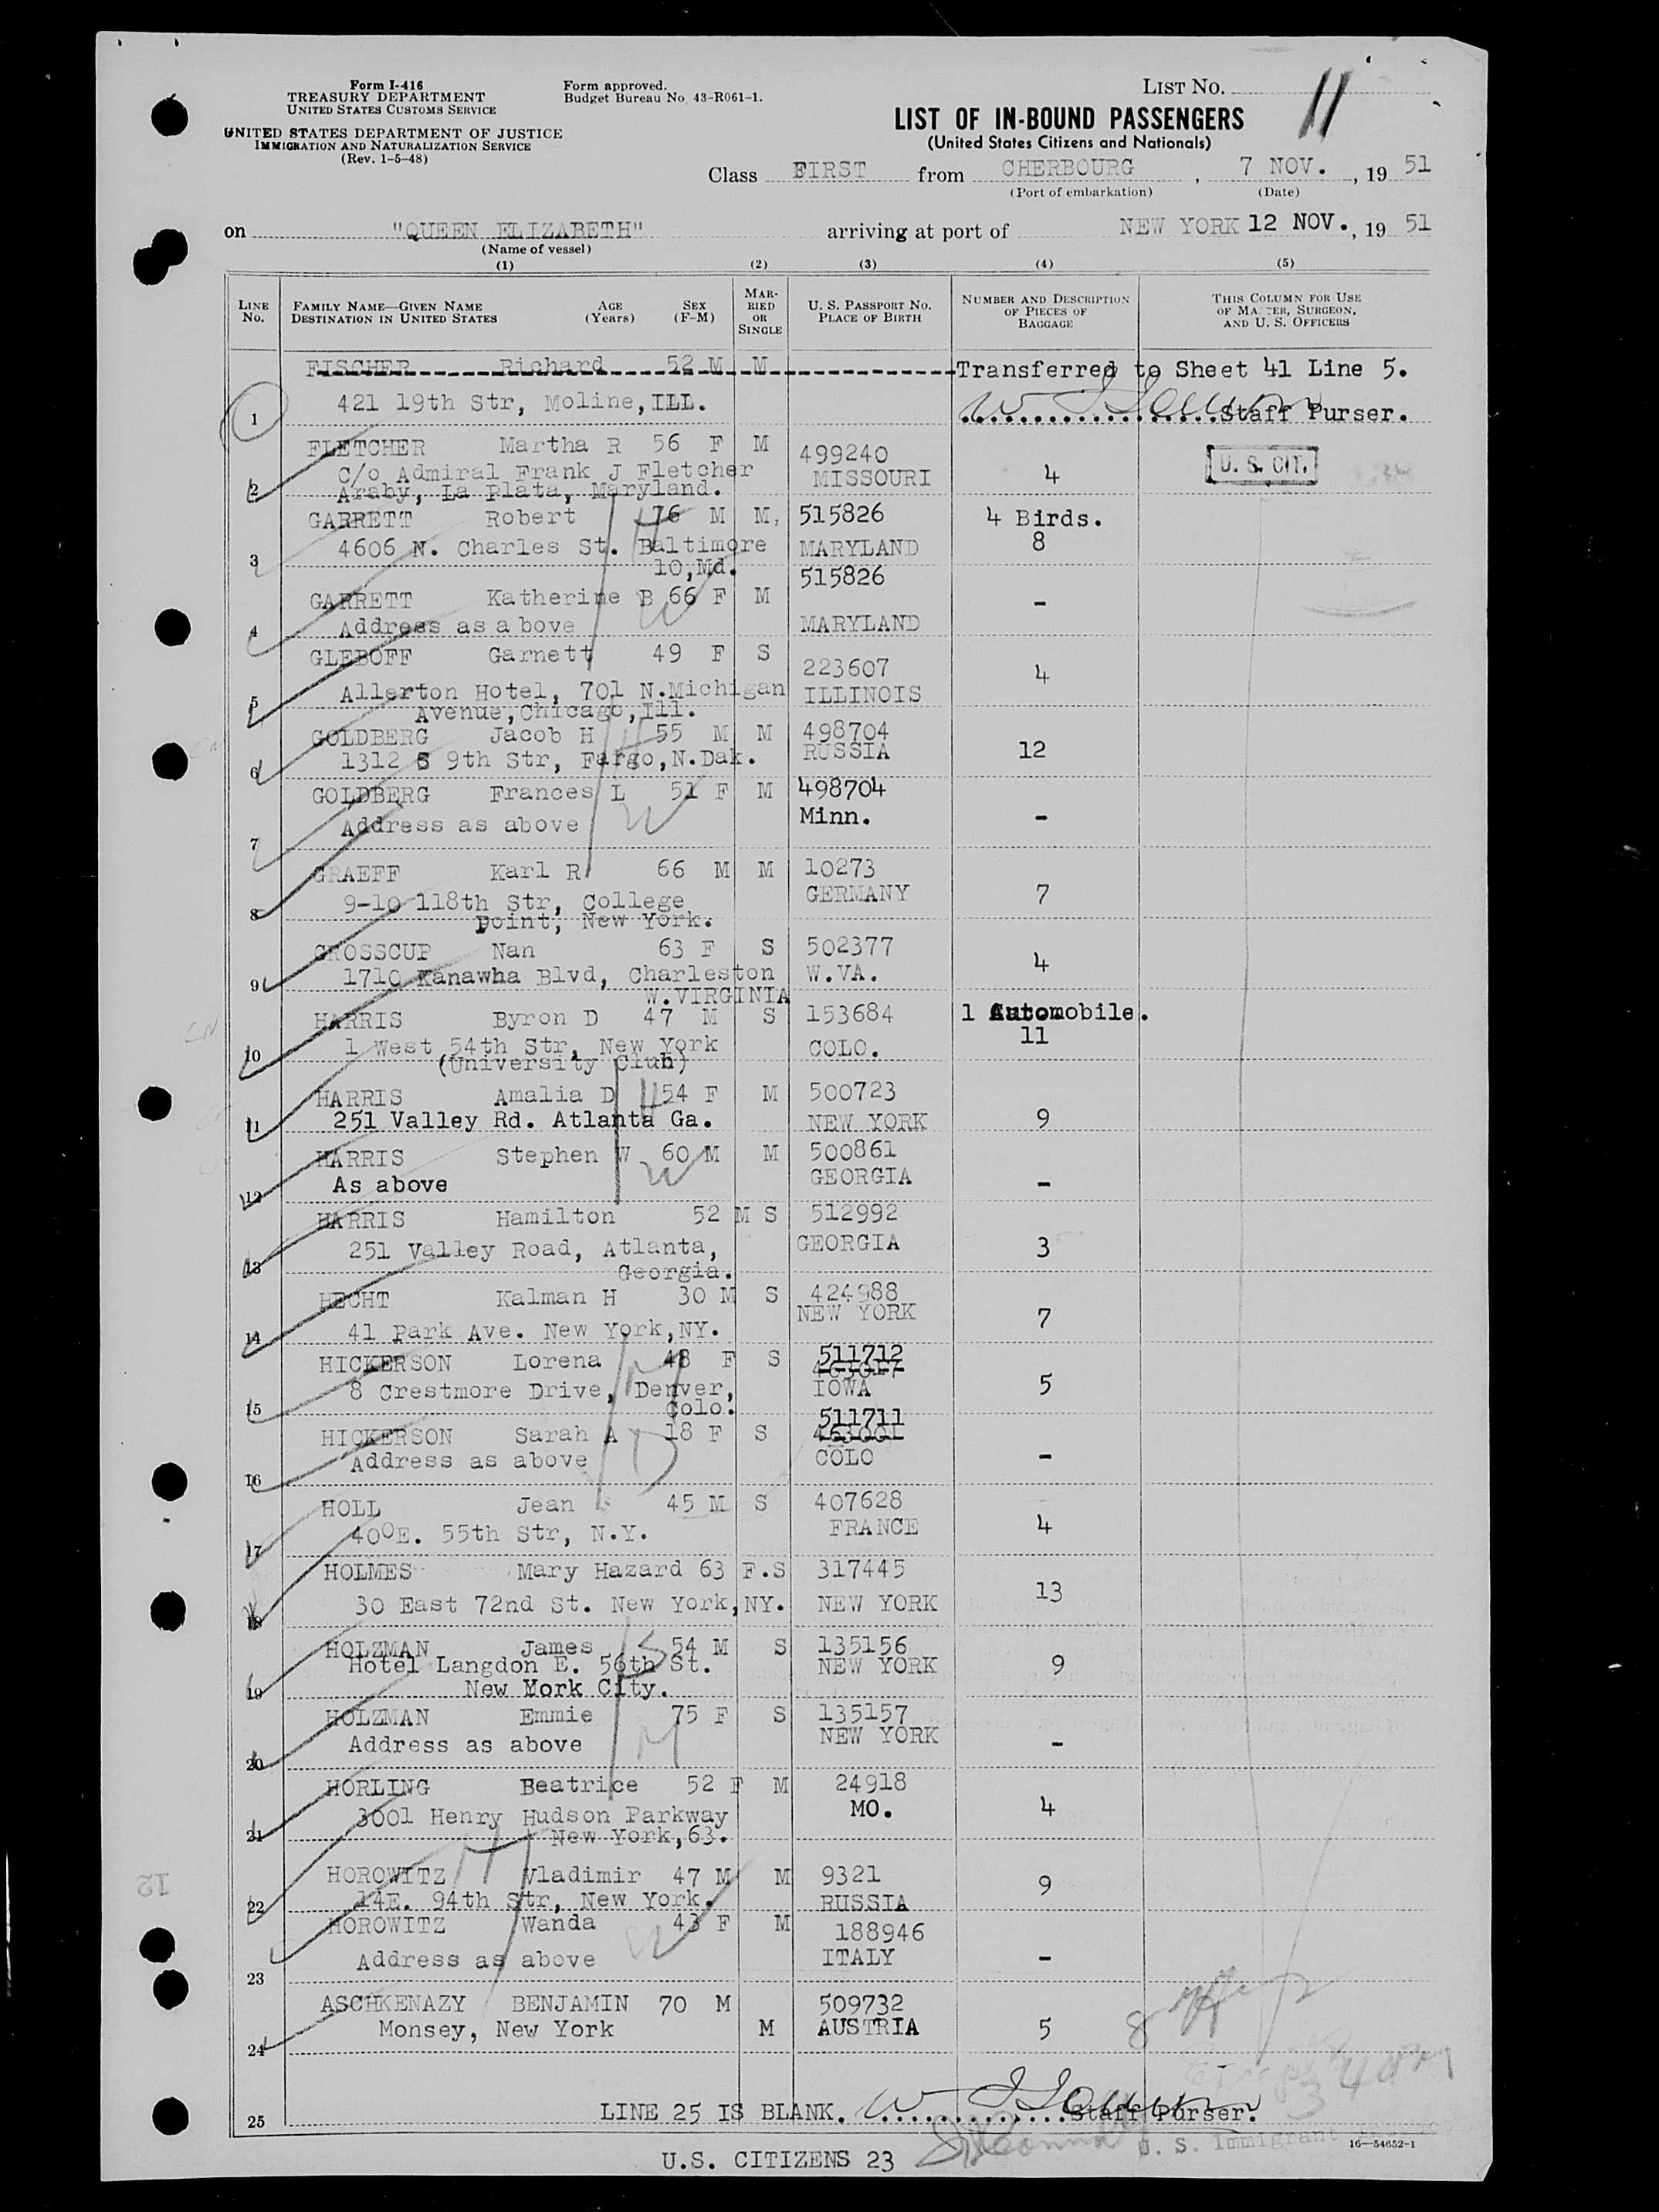 Form I-416
TREASURY DEPARTMENT
UNITED STATES CUSTOMS SERVICE
UNITED STATES DEPARTMENT OF JUSTICE
IMMIGRATION AND NATURALIZATION SERVICE
(Rev. 1-5-48)
Form approved.
Budget Bureau No. 43-R061-1.
LIST NO. 11
LIST OF IN-BOUND PASSENGERS
(United States Citizens and Nationals)
Class FIRST from CHERBOURG, 7 NOV., 19 51
(Port of embarkation) (Date)
on "QUEEN ELIZABETH" arriving at port of NEW YORK 12 NOV., 19 51
(Name of vessel)
(1) (2) (3) (4) (5)
LINE NO. FAMILY NAME—GIVEN NAME DESTINATION IN UNITED STATES AGE (Years) SEX (F-M) MARRIED OR SINGLE U. S. PASSPORT NO. PLACE OF BIRTH NUMBER AND DESCRIPTION OF PIECES OF BAGGAGE THIS COLUMN FOR USE OF MASTER, SURGEON, AND U. S. OFFICERS
FISCHER Richard 52 M M Transferred to Sheet 41 Line 5.
1 421 19th Str, Moline, ILL. Staff Purser.
FLETCHER Martha R 56 F M 499240
C/o Admiral Frank J Fletcher MISSOURI 4 U. S. CIT.
2 Araby, La Plata, Maryland.
GARRETT Robert 76 M M, 515826 4 Birds.
3 4606 N. Charles St. Baltimore MARYLAND 8
10, Md.
GARRETT Katherine B 66 F M 515826 -
4 Address as above MARYLAND
GLEBOFF Garnett 49 F S 223607 4
5 Allerton Hotel, 701 N.Michigan ILLINOIS
Avenue, Chicago, Ill.
GOLDBERG Jacob H 55 M M 498704
6 1312 S 9th Str, Fargo, N.Dak. RUSSIA 12
GOLDBERG Frances L 51 F M 498704
7 Address as above Minn. -
GRAEFF Karl R 66 M M 10273
8 9-10 118th Str, College GERMANY 7
point, New York.
GROSSCUP Nan 63 F S 502377 4
9 1710 Kanawha Blvd, Charleston W.VA.
W.VIRGINIA
HARRIS Byron D 47 M S 153684 1 Automobile.
10 1 West 54th Str, New York COLO. 11
(University Club)
HARRIS Amalia D 54 F M 500723
11 251 Valley Rd. Atlanta Ga. NEW YORK 9
HARRIS Stephen W 60 M M 500861
12 As above GEORGIA -
HARRIS Hamilton 52 M S 512992
13 251 Valley Road, Atlanta, GEORGIA 3
Georgia.
HECHT Kalman H 30 M S 424988
14 41 Park Ave. New York, NY. NEW YORK 7
HICKERSON Lorena 48 F S 511712
15 8 Crestmore Drive, Denver, IOWA 5
Colo.
HICKERSON Sarah A 18 F S 511711
16 Address as above COLO -
HOLL Jean 45 M S 407628
17 400E. 55th Str, N.Y. FRANCE 4
HOLMES Mary Hazard 63 F.S 317445
18 30 East 72nd St. New York, NY. NEW YORK 13
HOLZMAN James 54 M S 135156
19 Hotel Langdon E. 56th St. NEW YORK 9
New York City.
HOLZMAN Emmie 75 F S 135157
20 Address as above NEW YORK -
HORLING Beatrice 52 F M 24918
21 3001 Henry Hudson Parkway MO. 4
New York, 63.
HOROWITZ Vladimir 47 M M 9321
22 14E. 94th Str, New York. RUSSIA 9
HOROWITZ Wanda 43 F M 188946
23 Address as above ITALY -
ASCHKENAZY BENJAMIN 70 M 509732
24 Monsey, New York M AUSTRIA 5
25 LINE 25 IS BLANK. Staff Purser.
U. S. Immigrant
16—54652-1
U.S. CITIZENS 23